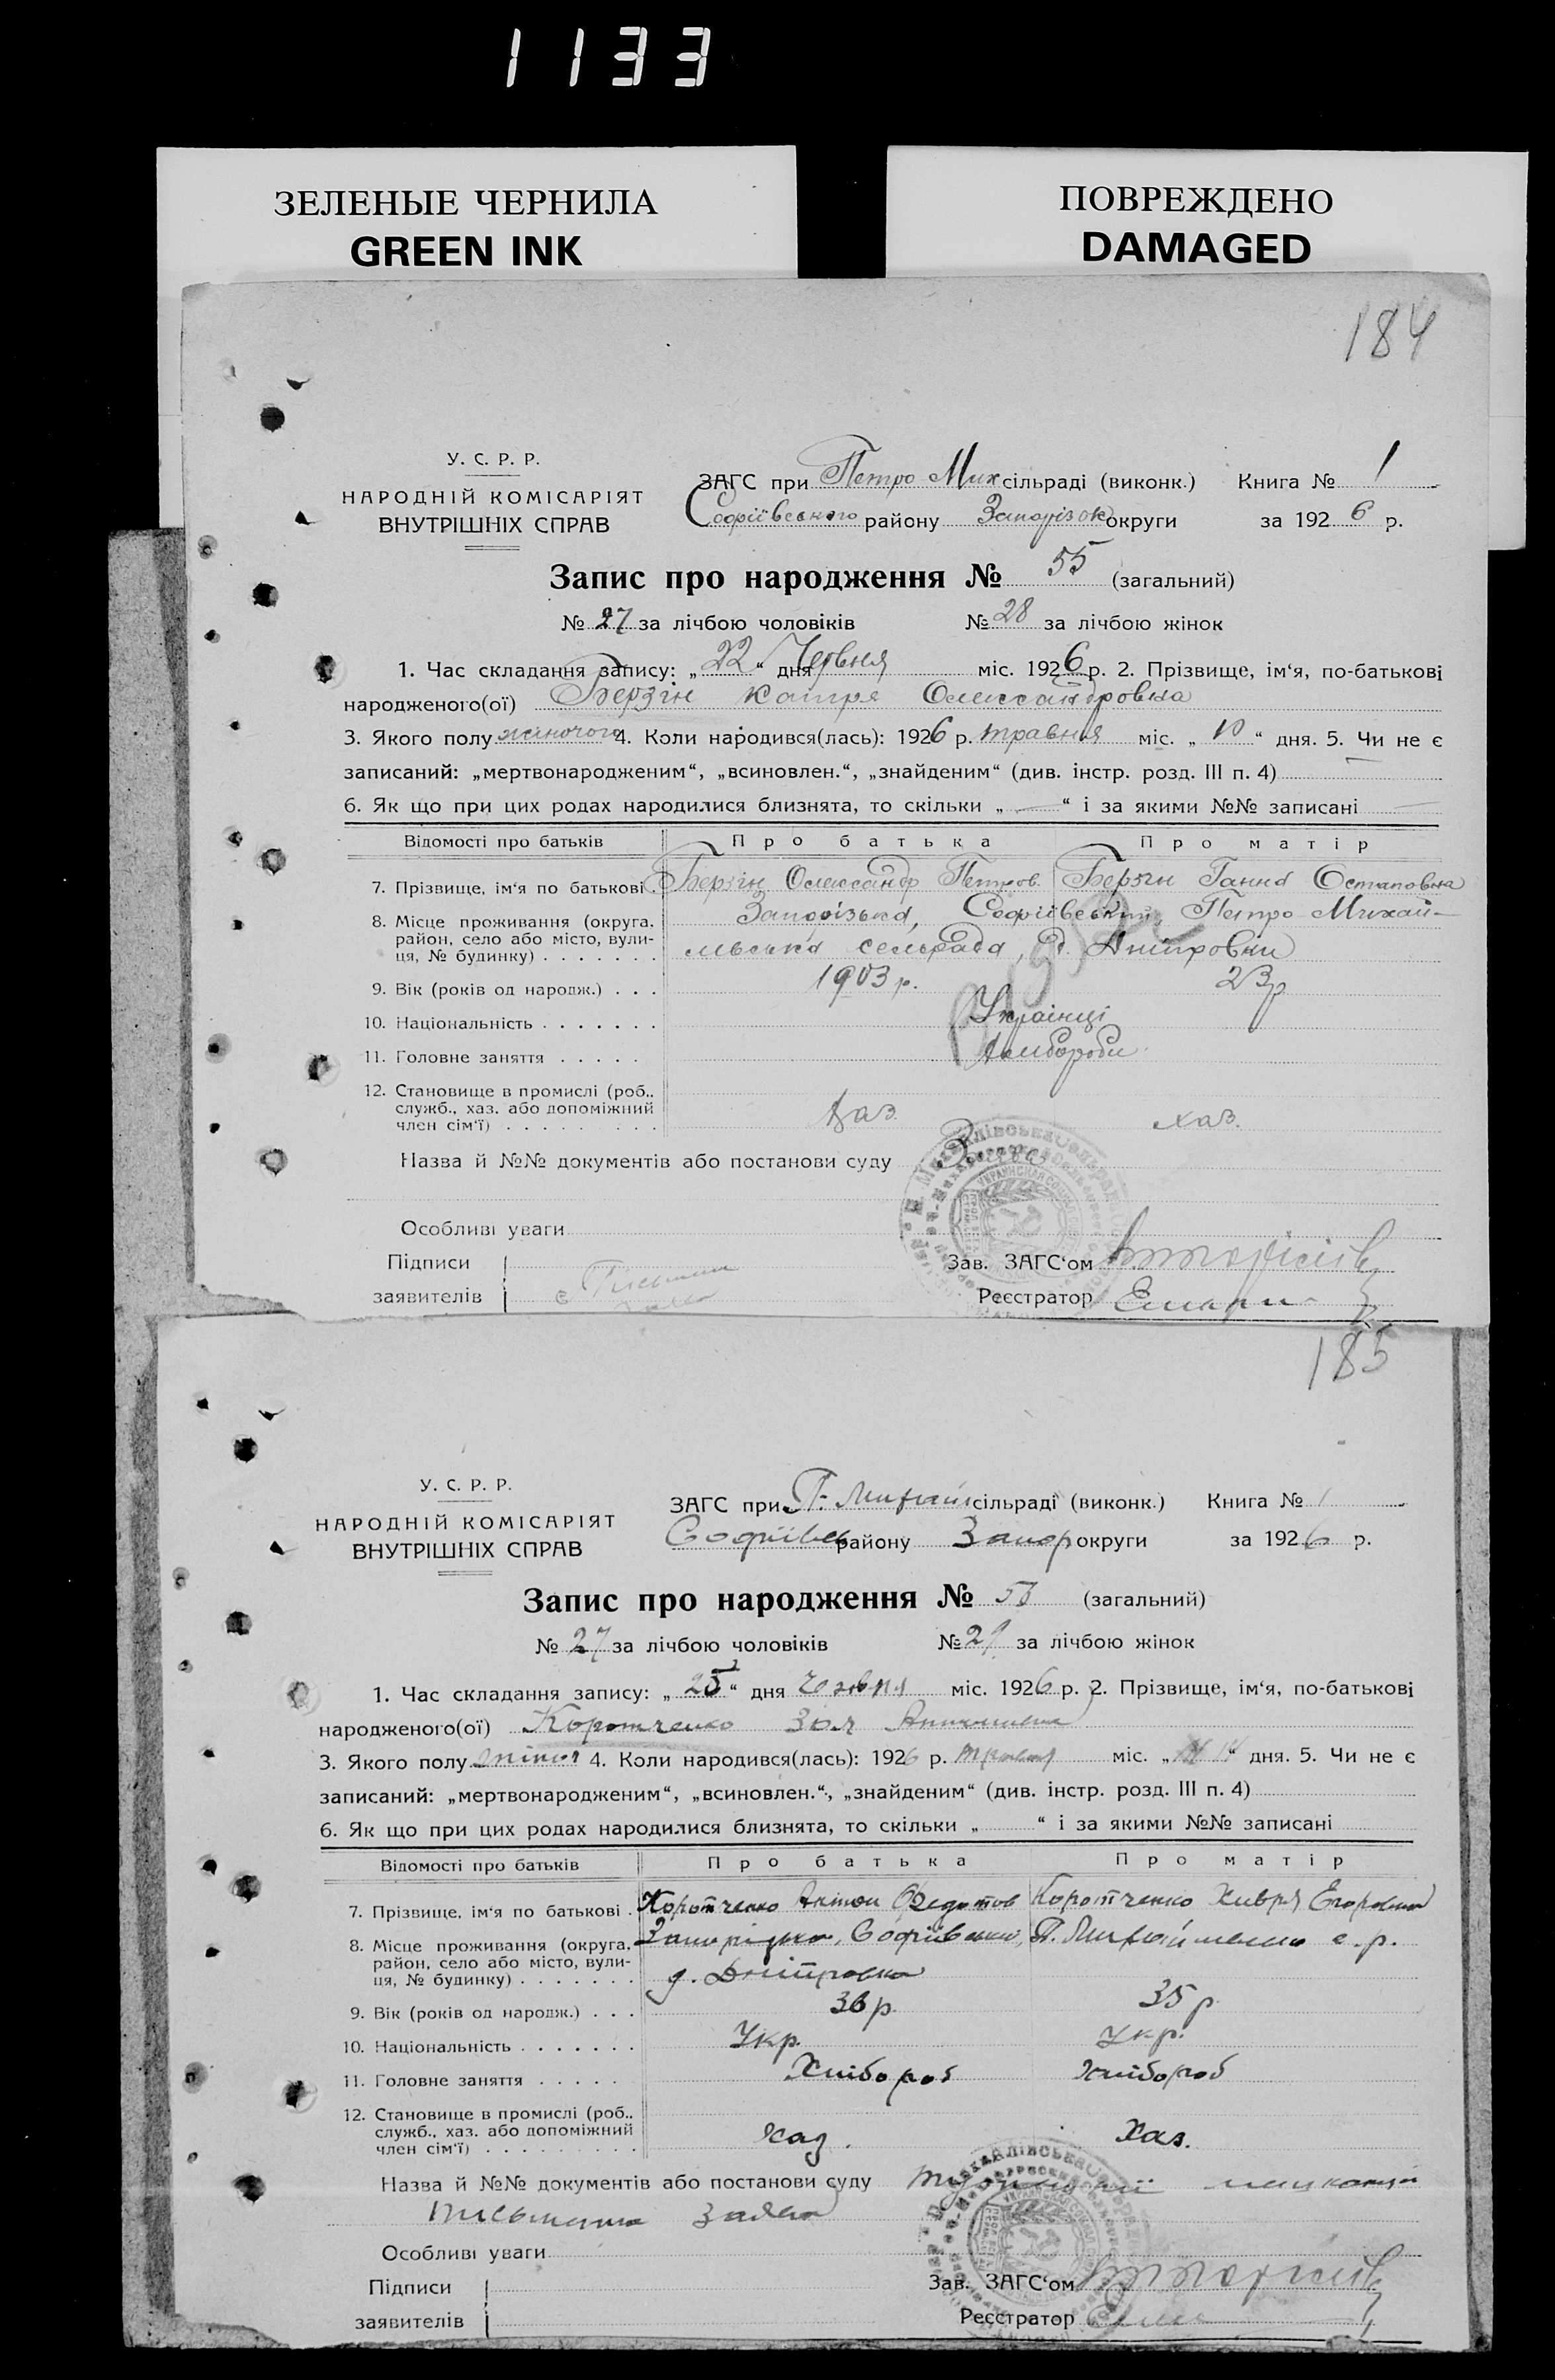 1133
ЗЕЛЕНЫЕ ЧЕРНИЛА
GREEN INK
ПОВРЕЖДЕНО
DAMAGED
184
У. С. Р. Р.
НАРОДНІЙ КОМІСАРІЯТ
ВНУТРІШНІХ СПРАВ
ЗАГС при Петро Мих сільраді (виконк.) Книга № 1
Софіївського району Запорізок округи за 1926 р.
Запис про народження № 55 (загальний)
№ 27 за лічбою чоловіків № 28 за лічбою жінок
1. Час складання запису: „22“ дня Червня міс. 1926 р. 2. Прізвище, ім‘я, по-батькові
народженого(ої) Берзін Катря Олександровна
3. Якого полу жіночого 4. Коли народився(лась): 1926 р. травня міс. „10“ дня. 5. Чи не є
записаний: „мертвонародженим“, „всиновлен.“, „знайденим“ (див. інстр. розд. III п. 4)
6. Як що при цих родах народилися близнята, то скільки „—“ і за якими №№ записані —
Відомості про батьків Про батька Про матір
7. Прізвище, ім‘я по батькові . Берзін Олександр Петров. Берзін Ганна Остаповна
8. Місце проживання (округа, район, село або місто, вулиця, № будинку) . . . . . . . Запорізька, Софіївський, Петро-Михай-
льська сельрада, Дніпровки
9. Вік (років од народж.) . . . 1903 р. 23 р
10. Національність . . . . . . . Українці
11. Головне заняття . . . . . Хлібороби
12. Становище в промислі (роб., служб., хаз. або допоміжний член сім‘ї) . . . . . . . . . хаз. хаз.
Назва й №№ документів або постанови суду Заява
Особливі уваги
Підписи
заявителів
Зав. ЗАГС‘ом
Реєстратор
185
У. С. Р. Р.
НАРОДНІЙ КОМІСАРІЯТ
ВНУТРІШНІХ СПРАВ
ЗАГС при П. Михайл сільраді (виконк.) Книга № 1
Софіївсь району Запор округи за 1926 р.
Запис про народження № (загальний)
№ 27 за лічбою чоловіків № 29 за лічбою жінок
1. Час складання запису: „25“ дня червня міс. 1926 р. 2. Прізвище, ім‘я, по-батькові
народженого(ої) Коротченко Зоя
3. Якого полу жіноч 4. Коли народився(лась): 1926 р. травня міс. „14“ дня. 5. Чи не є
записаний: „мертвонародженим“, „всиновлен.“, „знайденим“ (див. інстр. розд. III п. 4)
6. Як що при цих родах народилися близнята, то скільки „ “ і за якими №№ записані
Відомості про батьків Про батька Про матір
7. Прізвище, ім‘я по батькові . Коротченко Антон Федотов Коротченко Хивря Егоровна
8. Місце проживання (округа, район, село або місто, вулиця, № будинку) . . . . . . . Запорізька, Софіївський, П. Михайлівська с.р.
д. Дніпровка
9. Вік (років од народж.) . . . 36 р. 35 р
10. Національність . . . . . . . Укр. Укр.
11. Головне заняття . . . . . Хлібороб Хлібороб
12. Становище в промислі (роб., служб., хаз. або допоміжний член сім‘ї) . . . . . . . . . хаз. Хаз.
Назва й №№ документів або постанови суду
письменна заява
Особливі уваги
Підписи
заявителів
Зав. ЗАГС‘ом
Реєстратор